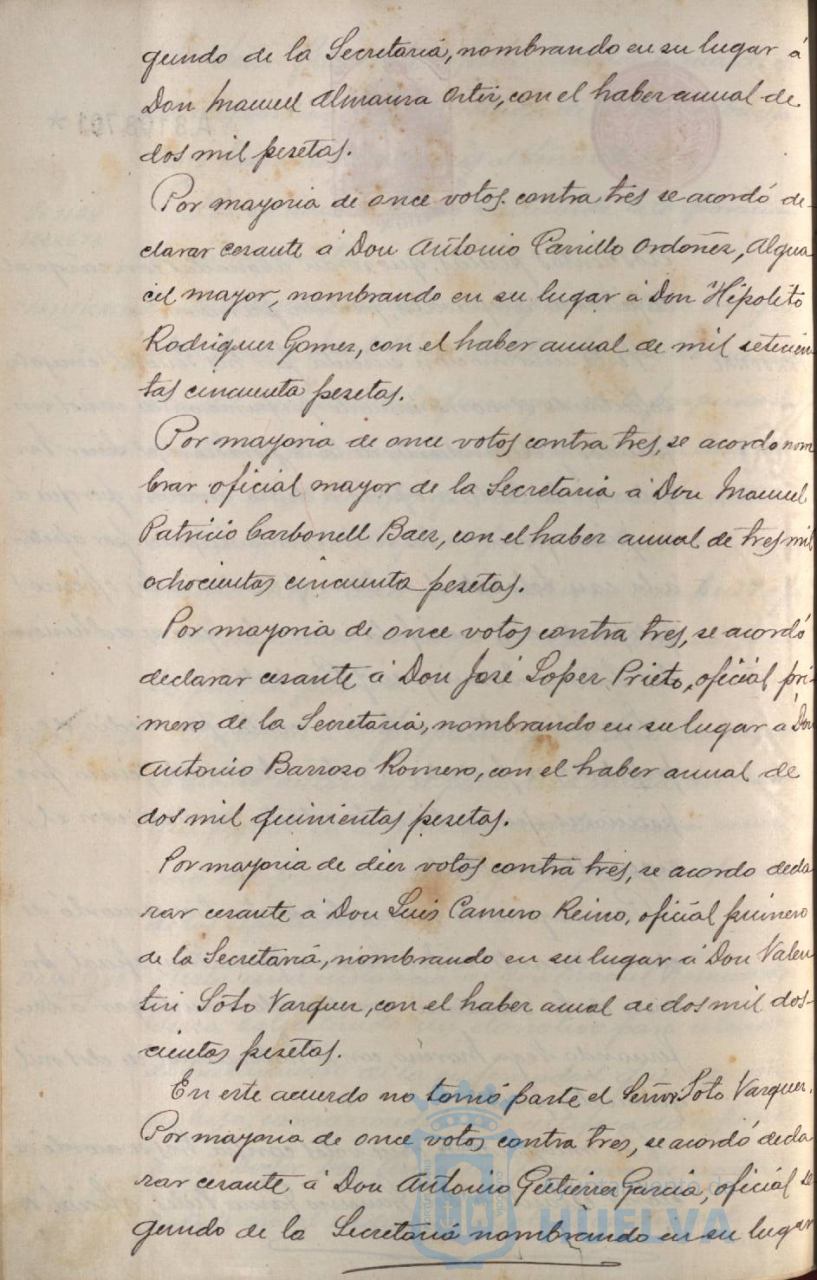 gundo de la Secretaría, nombrando en su lugar á
Don Manuel Almansa Ortiz, con el haber anual de
dos mil pesetas.
Por mayoria de once votos contra tres se acordó de-
clarar cesante á Don Antonio Carrillo Ordoñez, Algua
cil mayor, nombrando en su lugar á Don Hipolito
Rodriguez Gomez, con el haber anual de mil setecien
tas cincuenta pesetas.
Por mayoria de once votos contra tres, se acordo nom
brar oficial mayor de la Secretaria á Don Manuel
Patricio Carbonell Baez, con el haber anual de tres mil
ochocientas cincuenta pesetas.
Por mayoria de once votos contra tres, se acordó
declarar cesante á Don José Lopez Prieto, oficial pri-
mero de la Secretaría, nombrando en su lugar á Don
Antonio Barroso Romero, con el haber anual de
dos mil quinientas pesetas.
Por mayoria de diez votos contra tres, se acordo decla
rar cesante á Don Luis Camero Reino, oficial primero
de la Secretaría, nombrando en su lugar á Don Valen
tin Soto Vazquez, con el haber anual de dos mil dos-
cientas pesetas.
En este acuerdo no tomó parte el Señor Soto Vazquez.
Por mayoria de once votos contra tres, se acordó decla
rar cesante á Don Antonio Gutierrez Garcia, oficial se
gundo de la Secretaría nombrando en su lugar
HUELVA